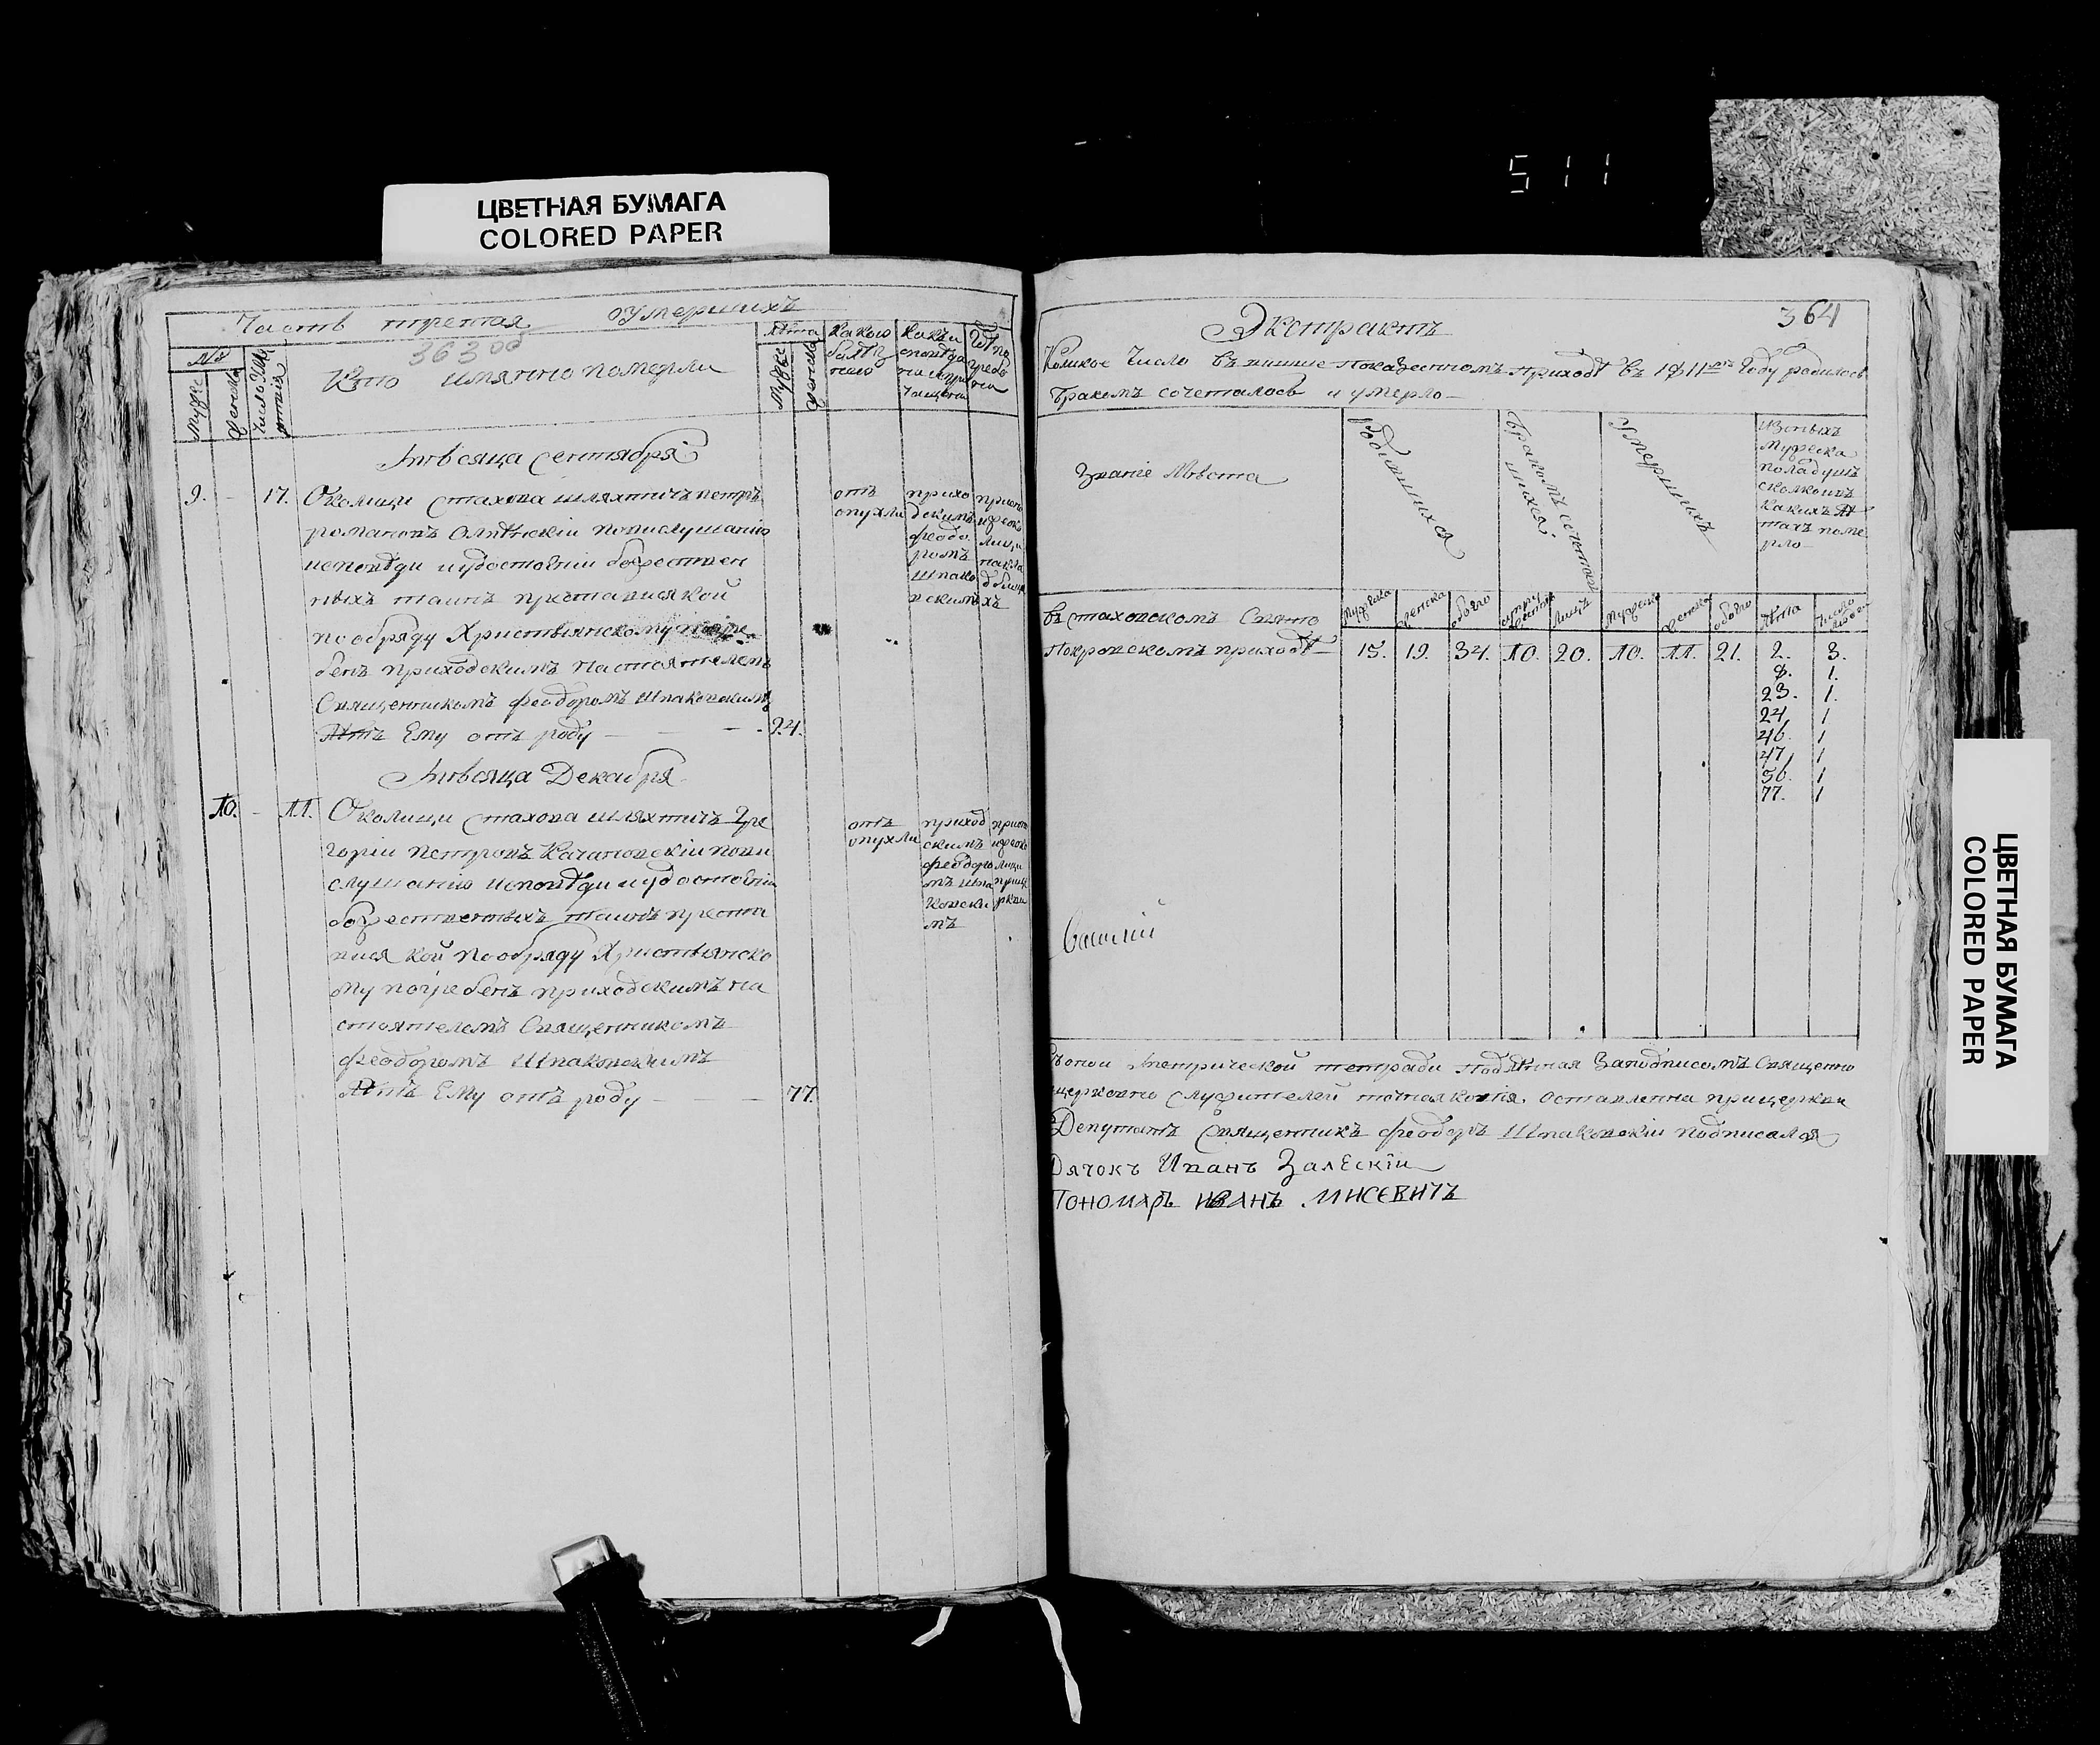 511
ЦВЕТНАЯ БУМАГА
COLORED PAPER
Часть третая оумершихъ
363 об
№
Мужес
женска
Число
Кто имянно померли
Лѣта
Мужес
женска
Какою
болѣз
нию
Кѣмъ
исповѣда
ны и при
чащены
Гдѣ по
гребе
ны
Мѣсяца Сентября
9. - 17. Околици Стахова шляхтичъ петръ
романовъ повислушанію
исповѣди иудостоѣніи божествен
ныхъ таинъ преставися кой
пообряду Християнскому погре
бенъ приходскимъ настоятелемъ
Священникомъ феодоромъ Шпаковскимъ
Лѣтъ Ему отъ роду - - - 24.
отъ
опухли
прихо
дскимъ
феодо
ромъ
шпако
вскимъ
Мѣсяца Декабря
10. - 11. Околици Стахова шляхтичъ Гре
горіи петровъ Качановскіи пови
слушанію исповѣди иудостоѣніи
божественныхъ таинъ преста
вися кой пообряду Християнско
му погребенъ приходскимъ на
стоятелемъ Священникомъ
феодоромъ Шпаковскимъ
Лѣтъ Ему отъ роду - - - 77.
отъ
опухли
приход
скимъ
феодоро
мъ шпа
ковски
мъ
Экстрактъ
364
Коликое Число въ нижшепоказанномъ приходѣ въ году родилось
бракомъ сочеталось и умерло
Званіе Мѣста
Родившихся
бракомъ сочетав
шихся
Умершихъ
изоныхъ
Мужеска
поладушъ
сколкоивъ
какихъ лѣ
тахъ поме
рло
въ стаховскомъ Свято
Покровскомъ приходѣ
Мужеска
женска
обоего
Лицъ
Мужеска
женска
обоего
Лѣта
Число
15. 19. 34. 10. 20. 10. 11. 21. 2. 3.
8. 1.
23. 1.
24, 1
46. 1
47, 1
56. 1
77. 1
Василій
Метрической тетради подлѣнная Заподписомъ Священно
церковно Служителей копія оставлена прицеркви
Депутатъ Священникъ феодоръ Шпаковскіи подписался
Дячокъ Иванъ Залѣскіи
Пономаръ ИВАНЪ МИСЕВИЧЪ
ЦВЕТНАЯ БУМАГА
COLORED PAPER